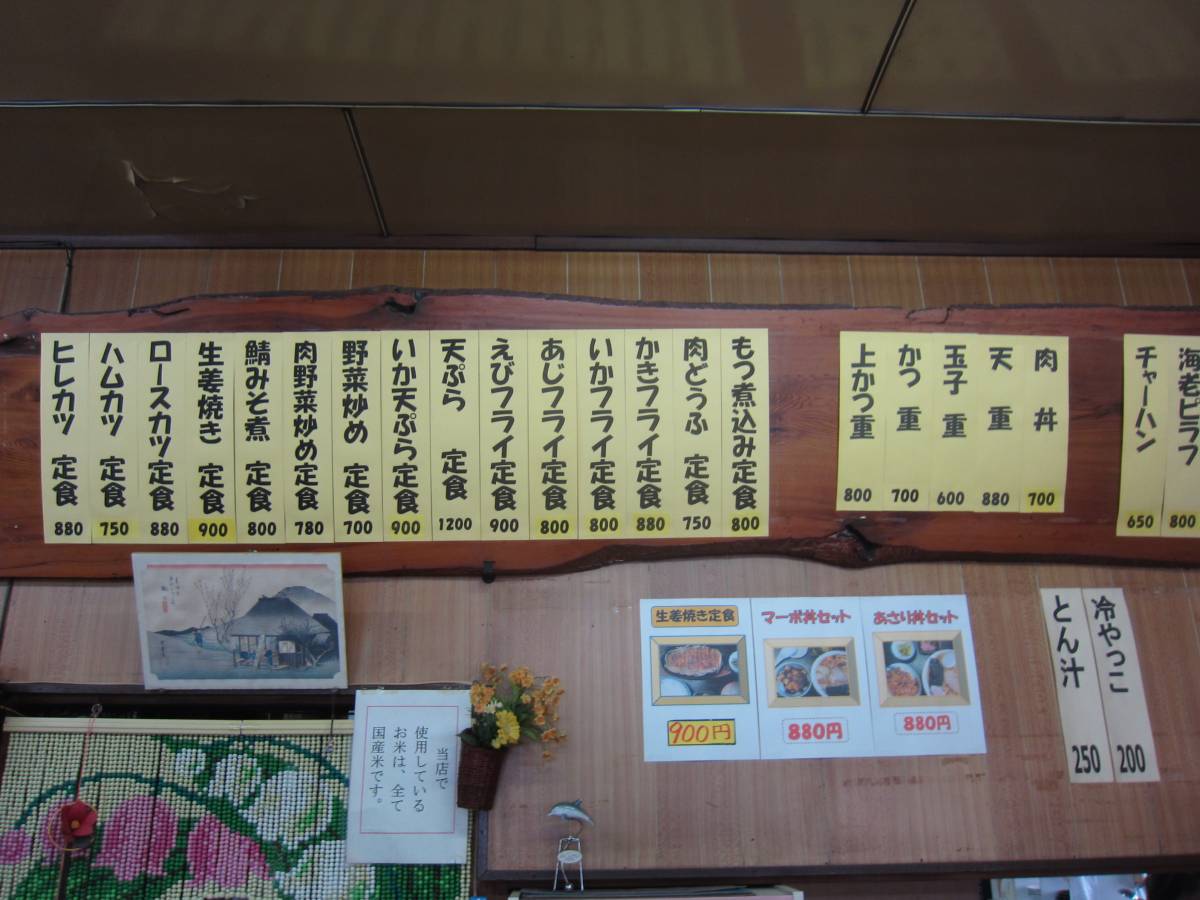 もつ煮込み定食 800
肉どうふ 定食 750
かきフライ定食 880
いかフライ定食 800
あじフライ定食 800
えびフライ定食 900
天ぷら 定食 1200
いか天ぷら定食 900
野菜炒め 定食 700
肉野菜炒め定食 780
鯖みそ煮 定食 800
生姜焼き 定食 900
ロースカツ定食 880
ハムカツ 定食 750
ヒレカツ 定食 880
肉丼 700
天重 880
玉子重 600
かつ重 700
上かつ重 800
海老ピラフ 800
チャーハン 650
生姜焼き定食
900円
マーボ丼セット
880円
あさり丼セット
880円
冷やっこ 200
とん汁 250
当店で
使用している
お米は、全て
国産米です。